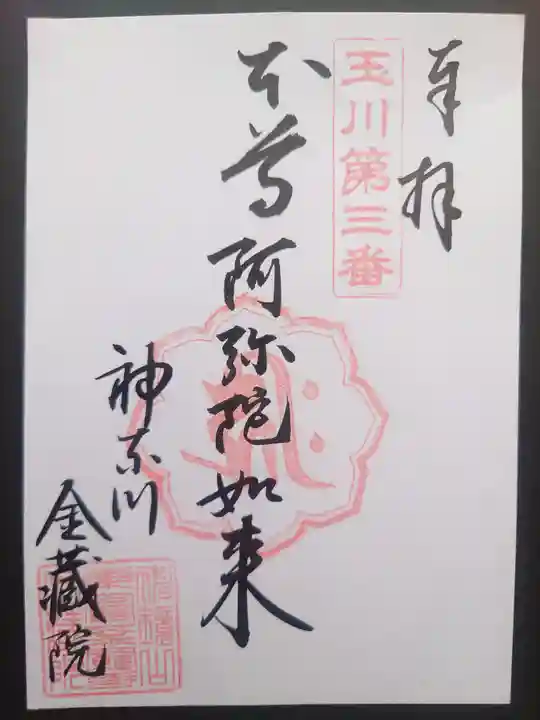 奉拝
玉川第三番
本尊
阿弥陀如来
神奈川
金蔵院